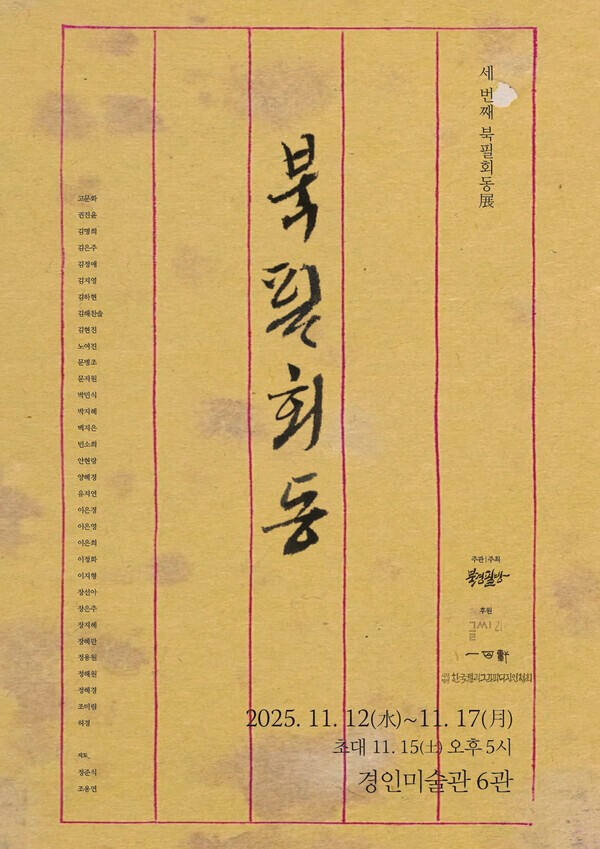 세 번째 북필회동展
북필회동
고문화
권진윤
김명희
김은주
김정애
김지영
김하현
김해찬솔
김현진
노여진
문명조
문지원
박민식
박지혜
백지은
빈소희
안현량
양혜경
유지연
이은경
이은영
이은희
이정화
이지형
장선아
장은주
장지혜
장혜란
정용원
정해원
정혜경
조미림
허경
지도_
정준식
조용연
주관|주최
북경필방
후원
글씨21
2025. 11. 12(水)~11. 17(月)
초대 11. 15(土) 오후 5시
경인미술관 6관